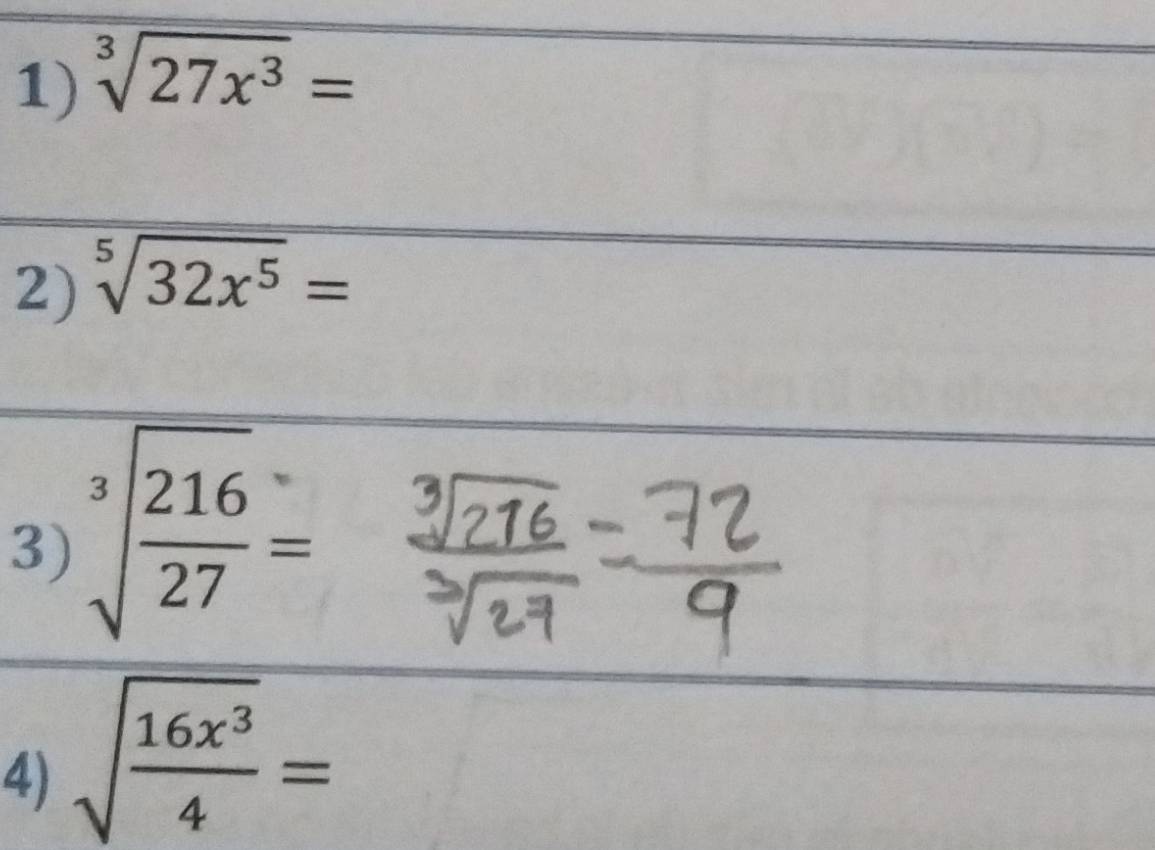 1) ∛27x³ =
2) ⁵√32x⁵ =
3) ∛(216/27) = ∛216/∛27 = 72/9
4) √(16x³/4) =